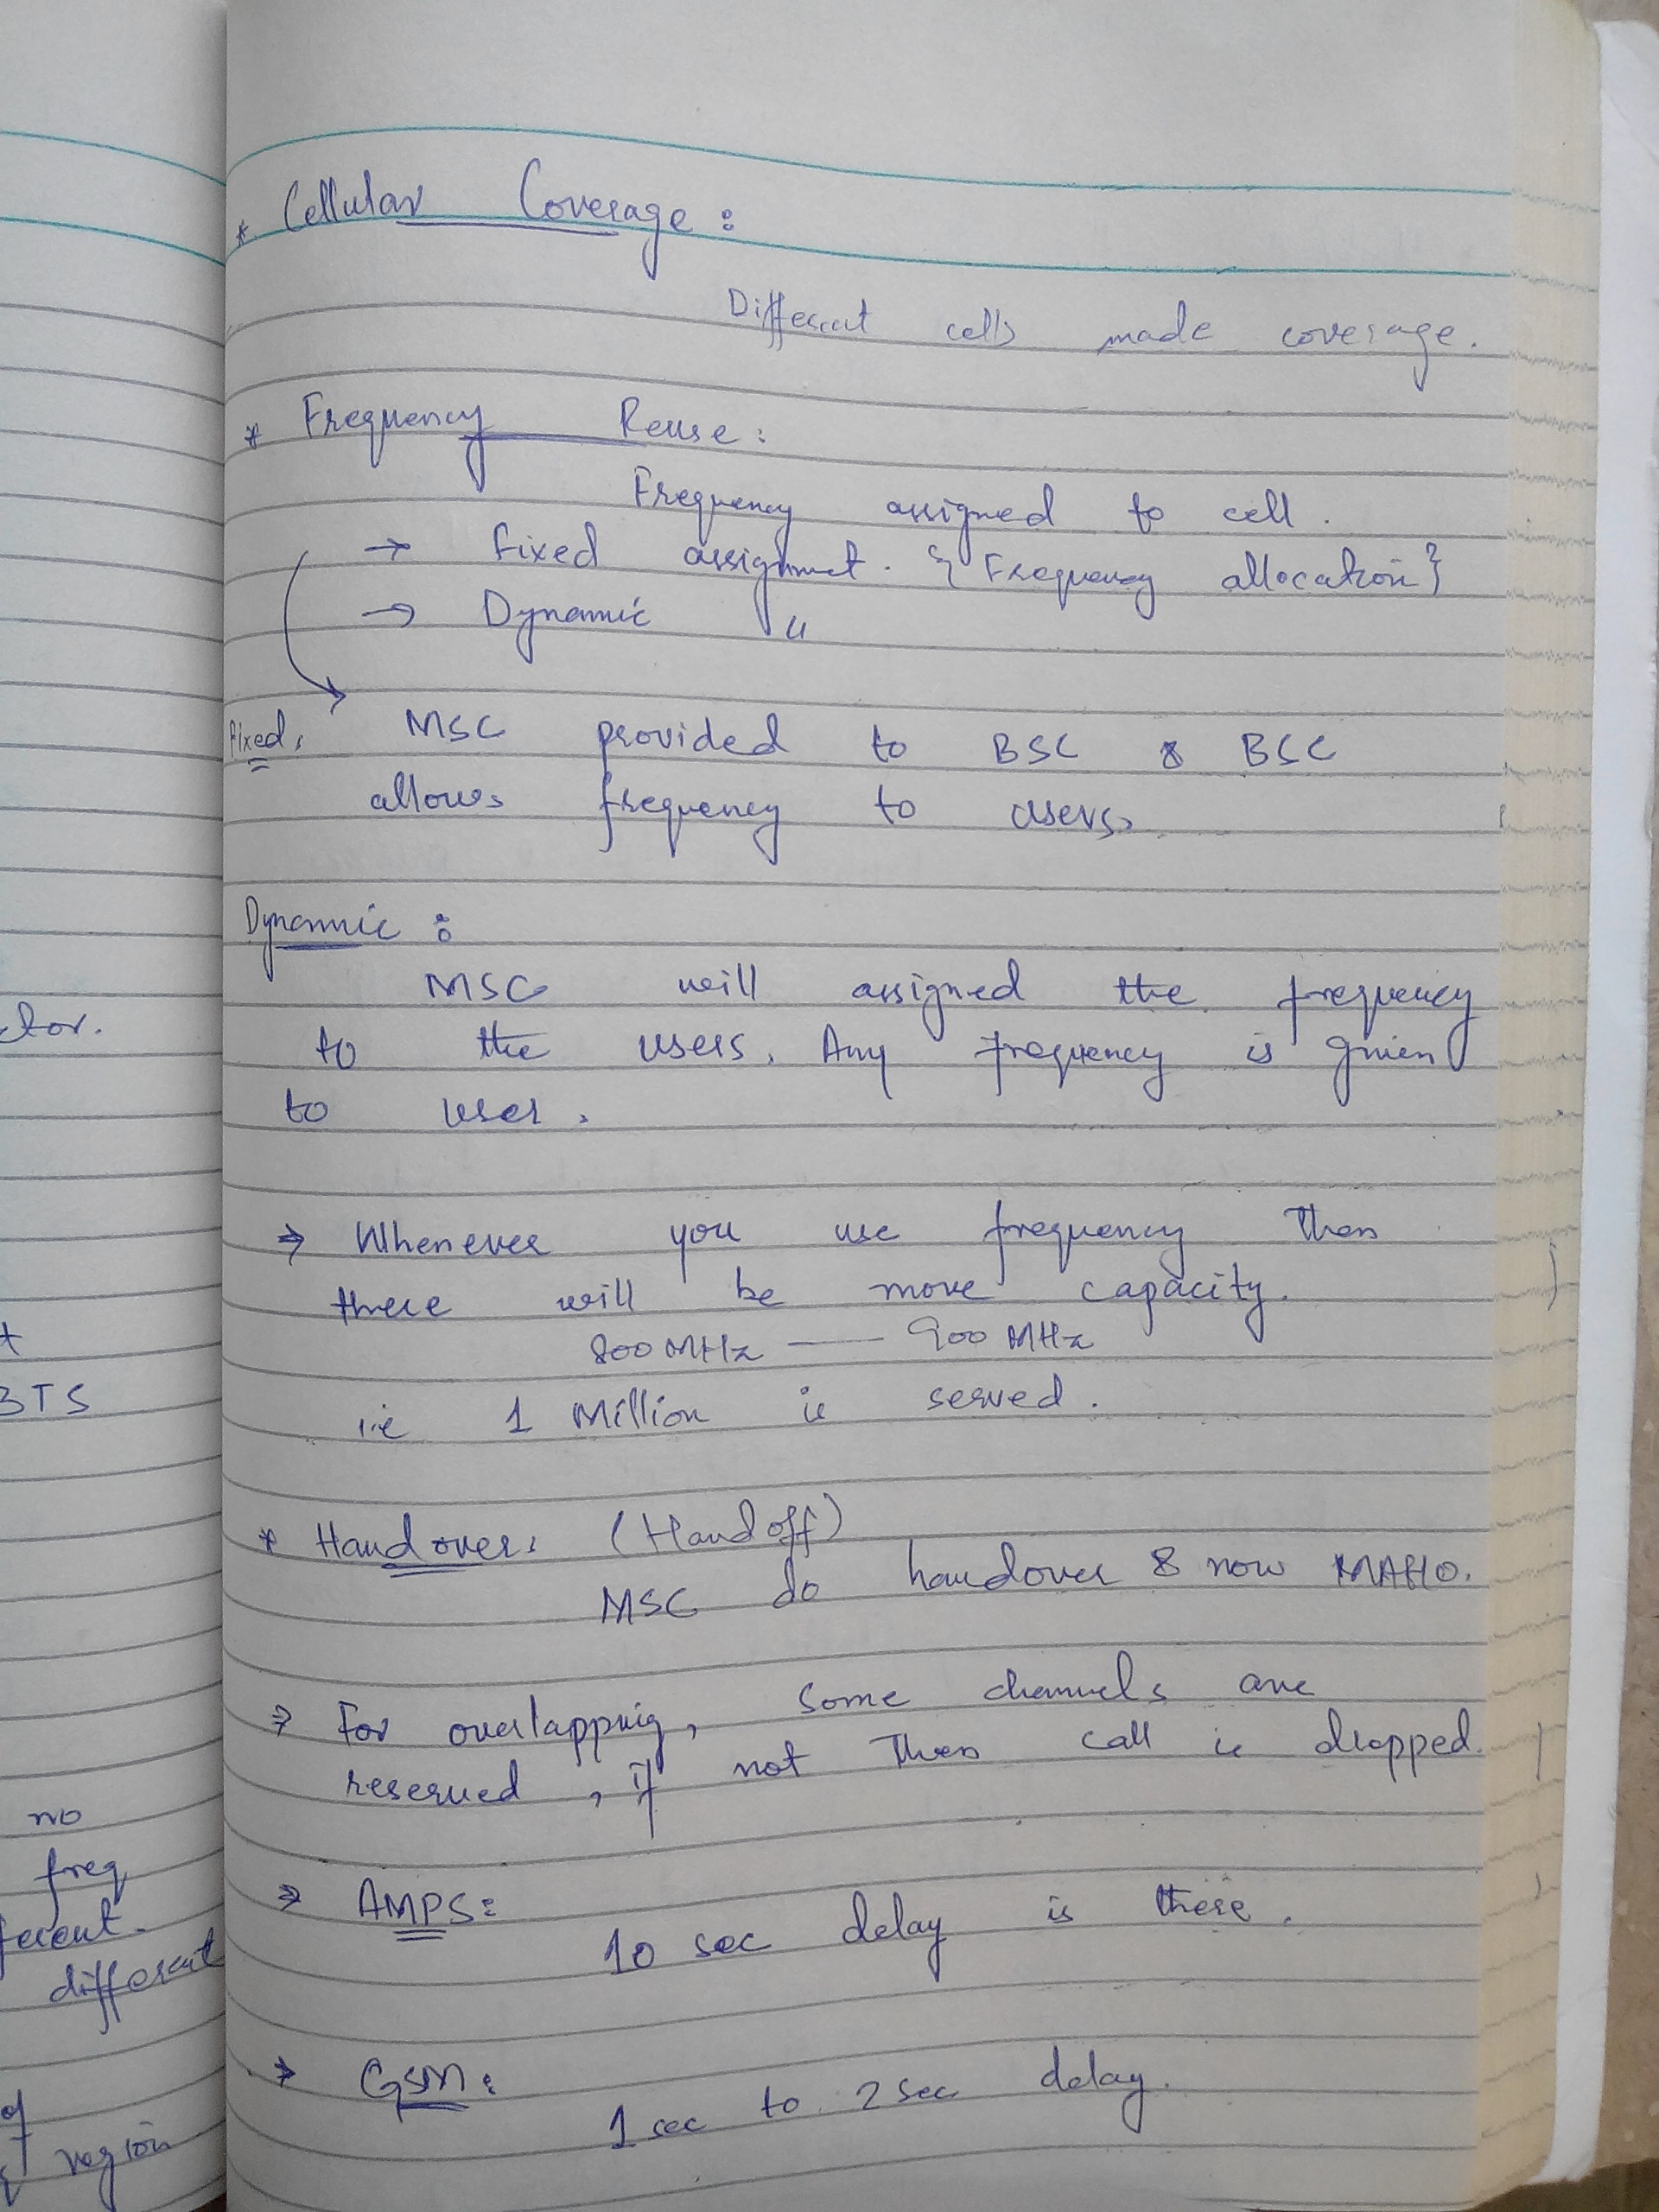 ctor.
t
BTS
no
freq
ferent.
different
of
region
* Cellular Coverage :
Different cells made coverage.
* Frequency Reuse :
Frequency assigned to cell.
→ fixed assignment. {Frequency allocation}
→ Dynamic "
fixed: MSC provided to BSC & BSC
allows frequency to users.
Dynamic :
MSC will assigned the frequency
to the users. Any frequency is given
to user.
⇒ Whenever you use frequency then
there will be more capacity.
800 MHz — 900 MHz
i.e 1 Million is served.
* Handover: (Handoff)
MSC do handover & now MAHO.
⇒ For overlapping, some channels are
reserved, if not then call is dropped.
⇒ AMPS:
10 sec delay is there.
⇒ GSM:
1 sec to 2 sec delay.